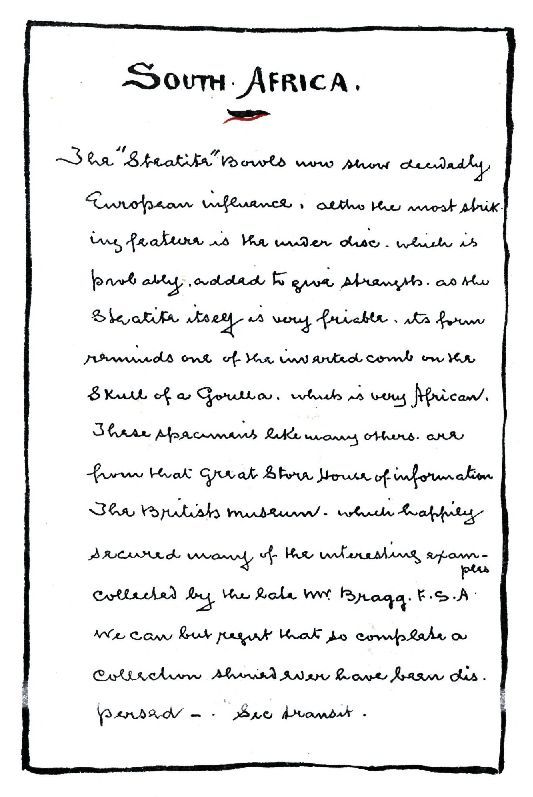 SOUTH · AFRICA.
The "Steatite" Bowls now show decidedly
European influence, altho the most strik-
ing feature is the under disc. which is
probably, added to give strength. as the
Steatite itself is very friable. its form
reminds one of the inverted comb on the
Skull of a Gorilla. which is very African.
These specimens like many others. are
from that Great Store House of information
The British Museum. which happily
secured many of the interesting exam-
ples
collected by the late Mr. Bragg. F.S.A.
We can but regret that so complete a
collection should ever have been dis.
persed — . Sic transit.